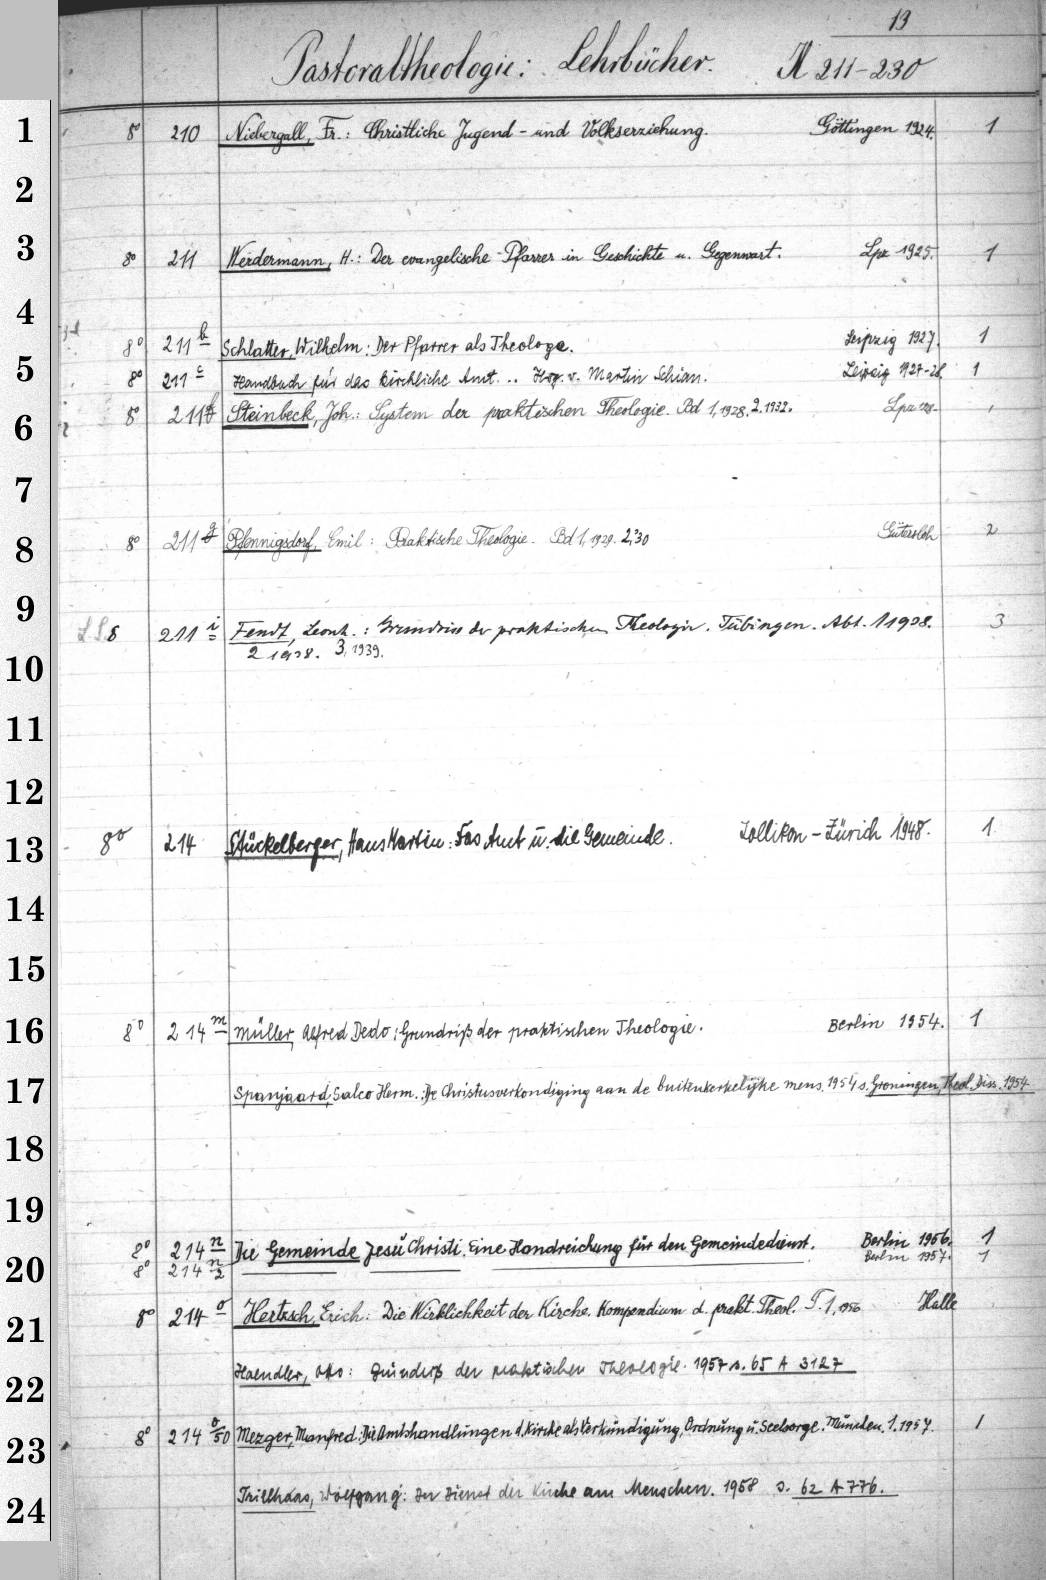 13
Pastoraltheologie: Lehrbücher. 211-230
1 8° 210 Niebergall, Fr.: Christliche Jugend- und Volkserziehung. Göttingen 1924. 1
2
3 8° 211 Werdermann, H.: Der evangelische Pfarrer in Geschichte u. Gegenwart. Lpz 1925. 1
4
8° 211 b Schlatter, Wilhelm: Der Pfarrer als Theologe. Leipzig 1927. 1
5 8° 211 c Handbuch für das kirchliche Amt... Hrg. v. Martin Schian. Leipzig 1927-28. 1
6 8° 211 Steinbeck, Joh.: System der praktischen Theologie. Bd 1, 1928. 2. 1932. Lpz
7
8 8° 211 g Pfennigsdorf, Emil: Praktische Theologie. Bd 1, 1929. 2, 30 Gütersloh 2
9
8 211 i Fendt, Leonh.: Grundriss der praktischen Theologie. Tübingen. Abt. 1 1938. 3
10 2 1938. 3, 1939.
11
12
13 8° 214 Stückelberger, Hans Martin: Das Amt u. die Gemeinde. Zollikon-Zürich 1948. 1
14
15
16 8° 214 m Müller, Alfred Dedo: Grundriß der praktischen Theologie. Berlin 1954. 1
17 Spanjaard, Salco Herm.: De Christusverkondiging aan de buitenkerkelijke mens. 1954 s. Groningen, Theol. Diss. 1954
18
19
8° 214 n Die Gemeinde Jesu Christi. Eine Handreichung für den Gemeindedienst. Berlin 1956. 1
20 8° 214 n 2 Berlin 1957. 1
21 8° 214 o Hertzsch, Erich: Die Wirklichkeit der Kirche. Kompendium d. prakt. Theol. T. 1, 1956 Halle
22 Haendler, Otto: Grundriß der praktischen Theologie. 1957 s. 65 A 3127
23 8° 214 o/50 Mezger, Manfred: Die Amtshandlungen d. Kirche als Verkündigung, Ordnung u. Seelsorge. München. 1. 1957. 1
24 Trillhaas, Wolfgang: Der Dienst der Kirche am Menschen. 1958 s. 62 A 776.